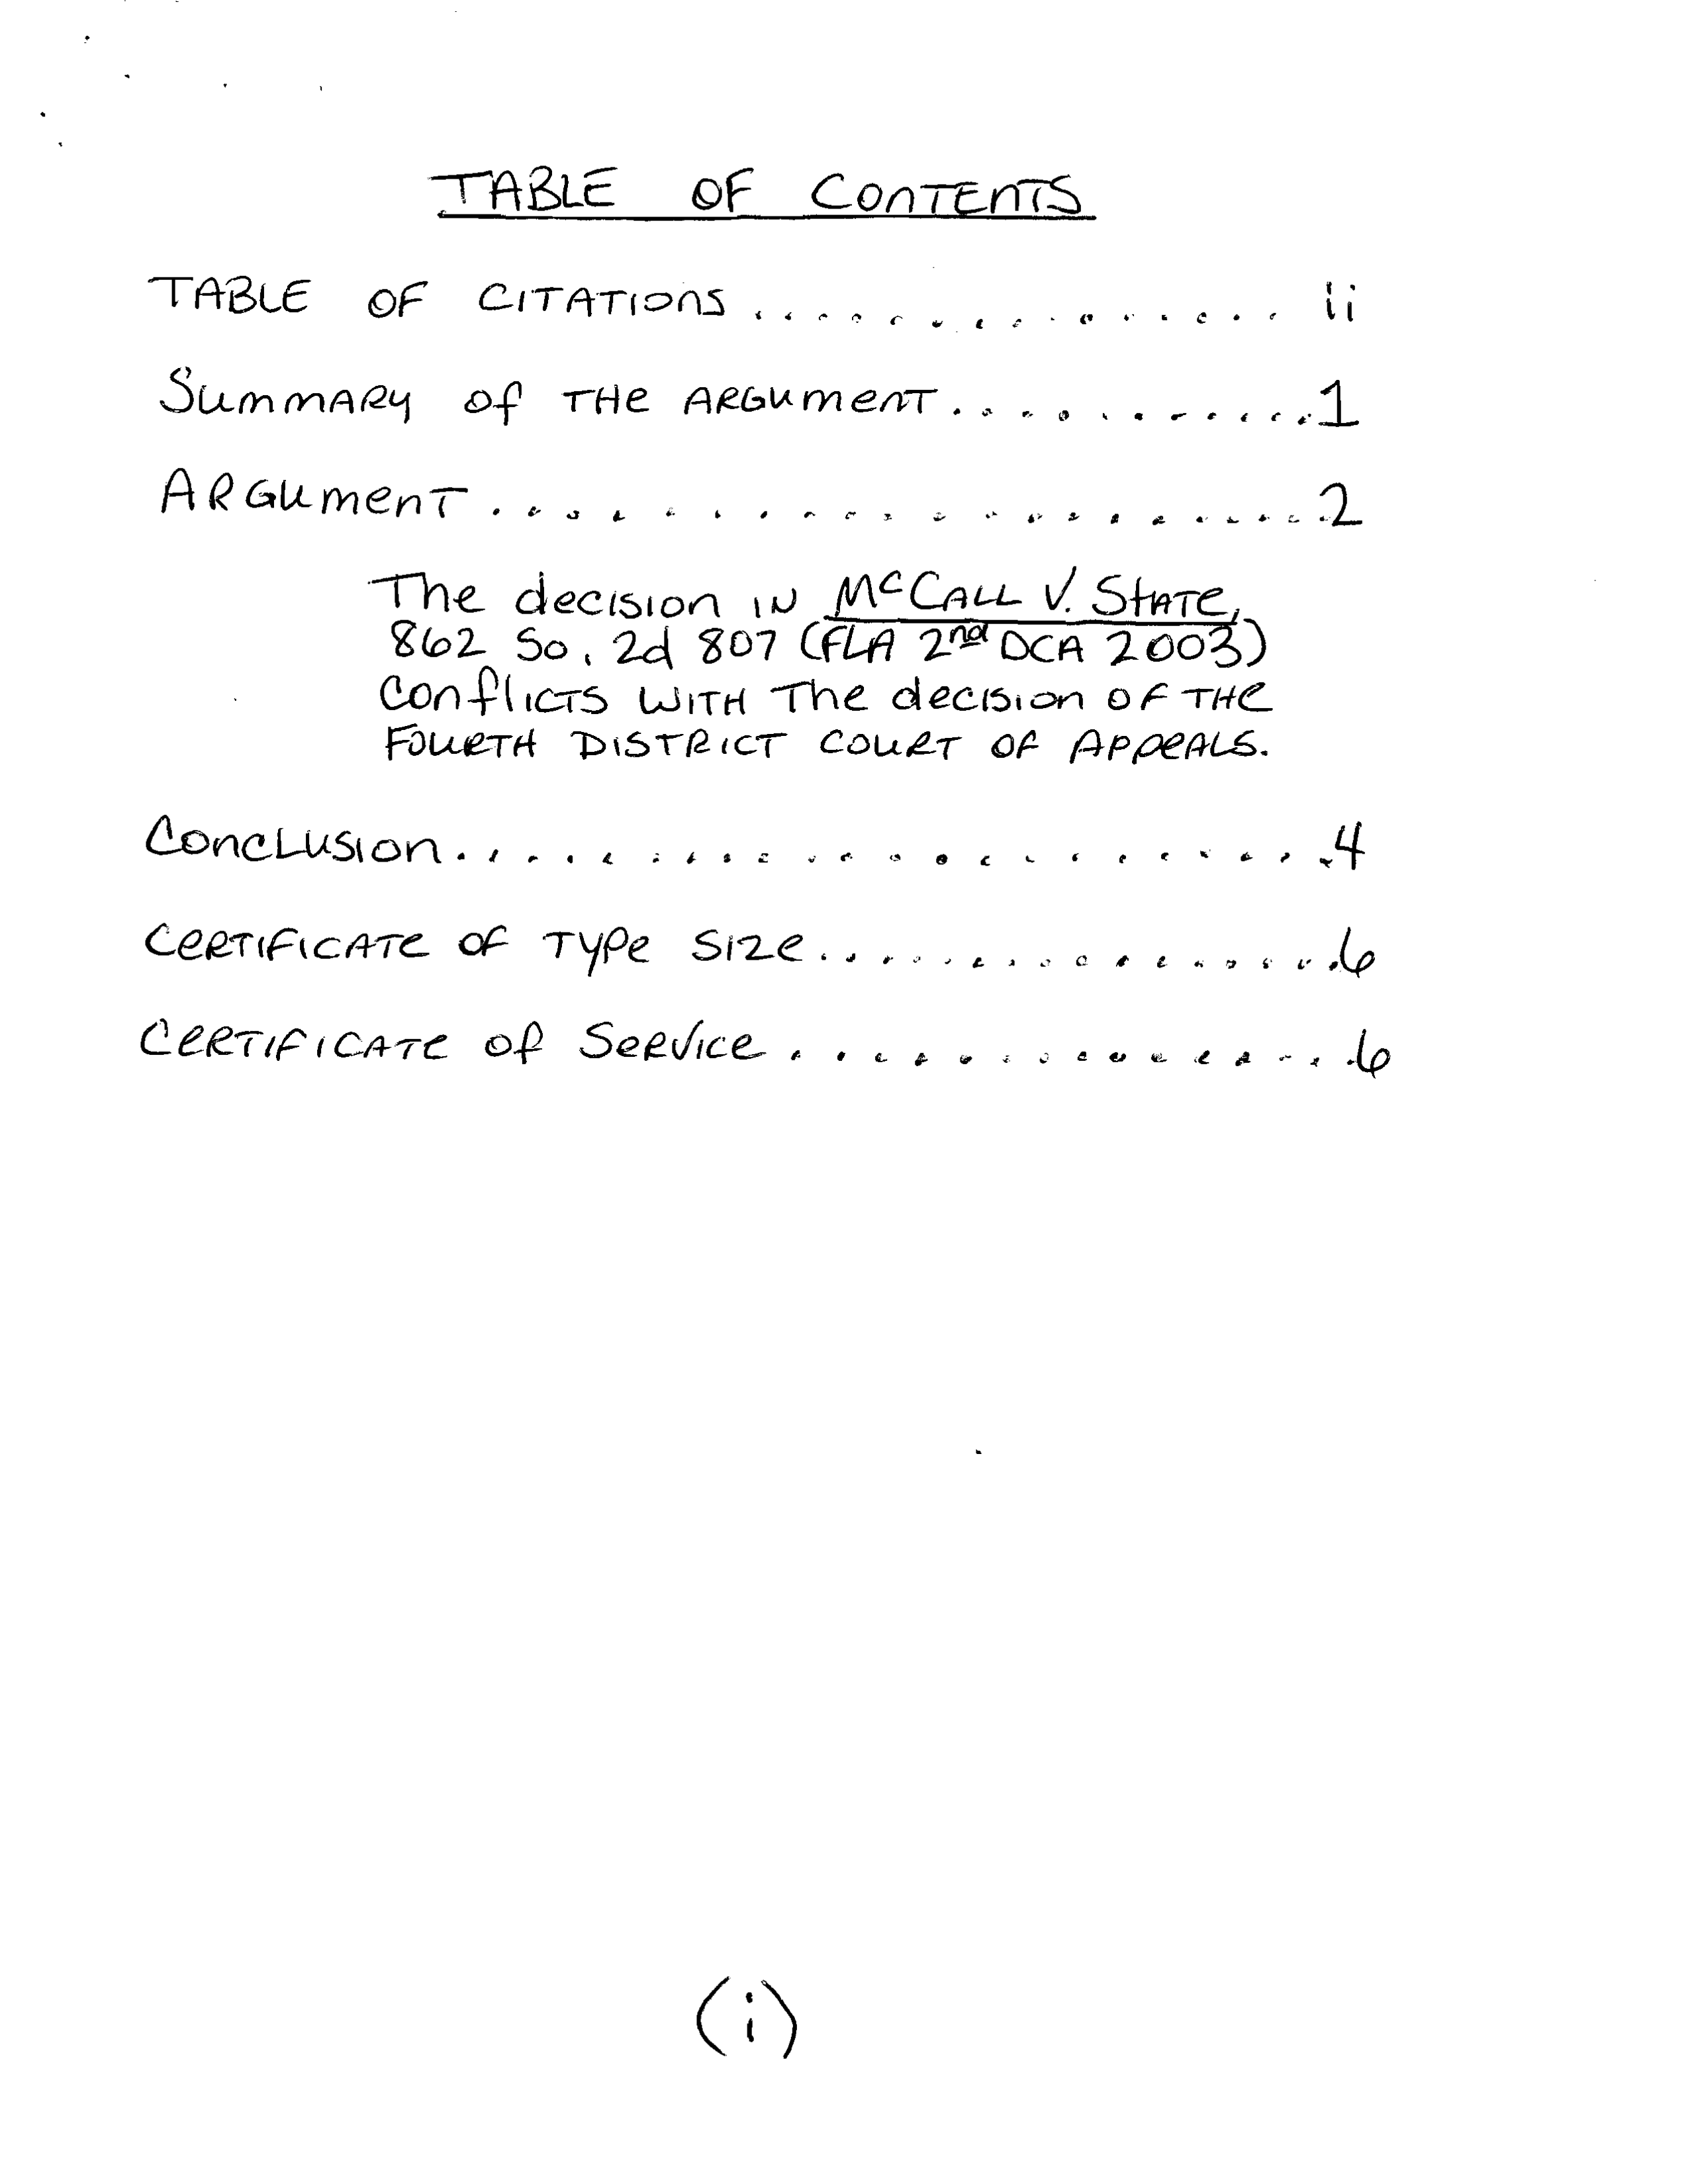 TABLE OF CONTENTS
TABLE OF CITATIONS .................. ii
Summary of THe ARGument ............ 1
ARGument ........................ 2
The decision IN McCALL V. STATE,
862 So. 2d 807 (FLA 2nd DCA 2003)
Conflicts WITH The decision OF THe
FOURTH DISTRICT COURT OF APPeALS.
Conclusion ....................... 4
CeRTIFICATe OF TYPe SIZe ................ 6
CeRTIFICATe Of SeRvice ................ 6
(i)